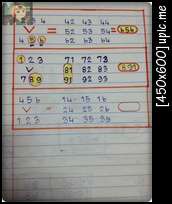 4 42 43 44
4 5 6 = 52 53 54 = 654
62 63 64
1 2 3 71 72 73
81 82 83
7 8 9 91 92 93
4 5 6 14 15 16
= 24 25 26 =
1 2 3 34 35 36
[450x600] upic.me